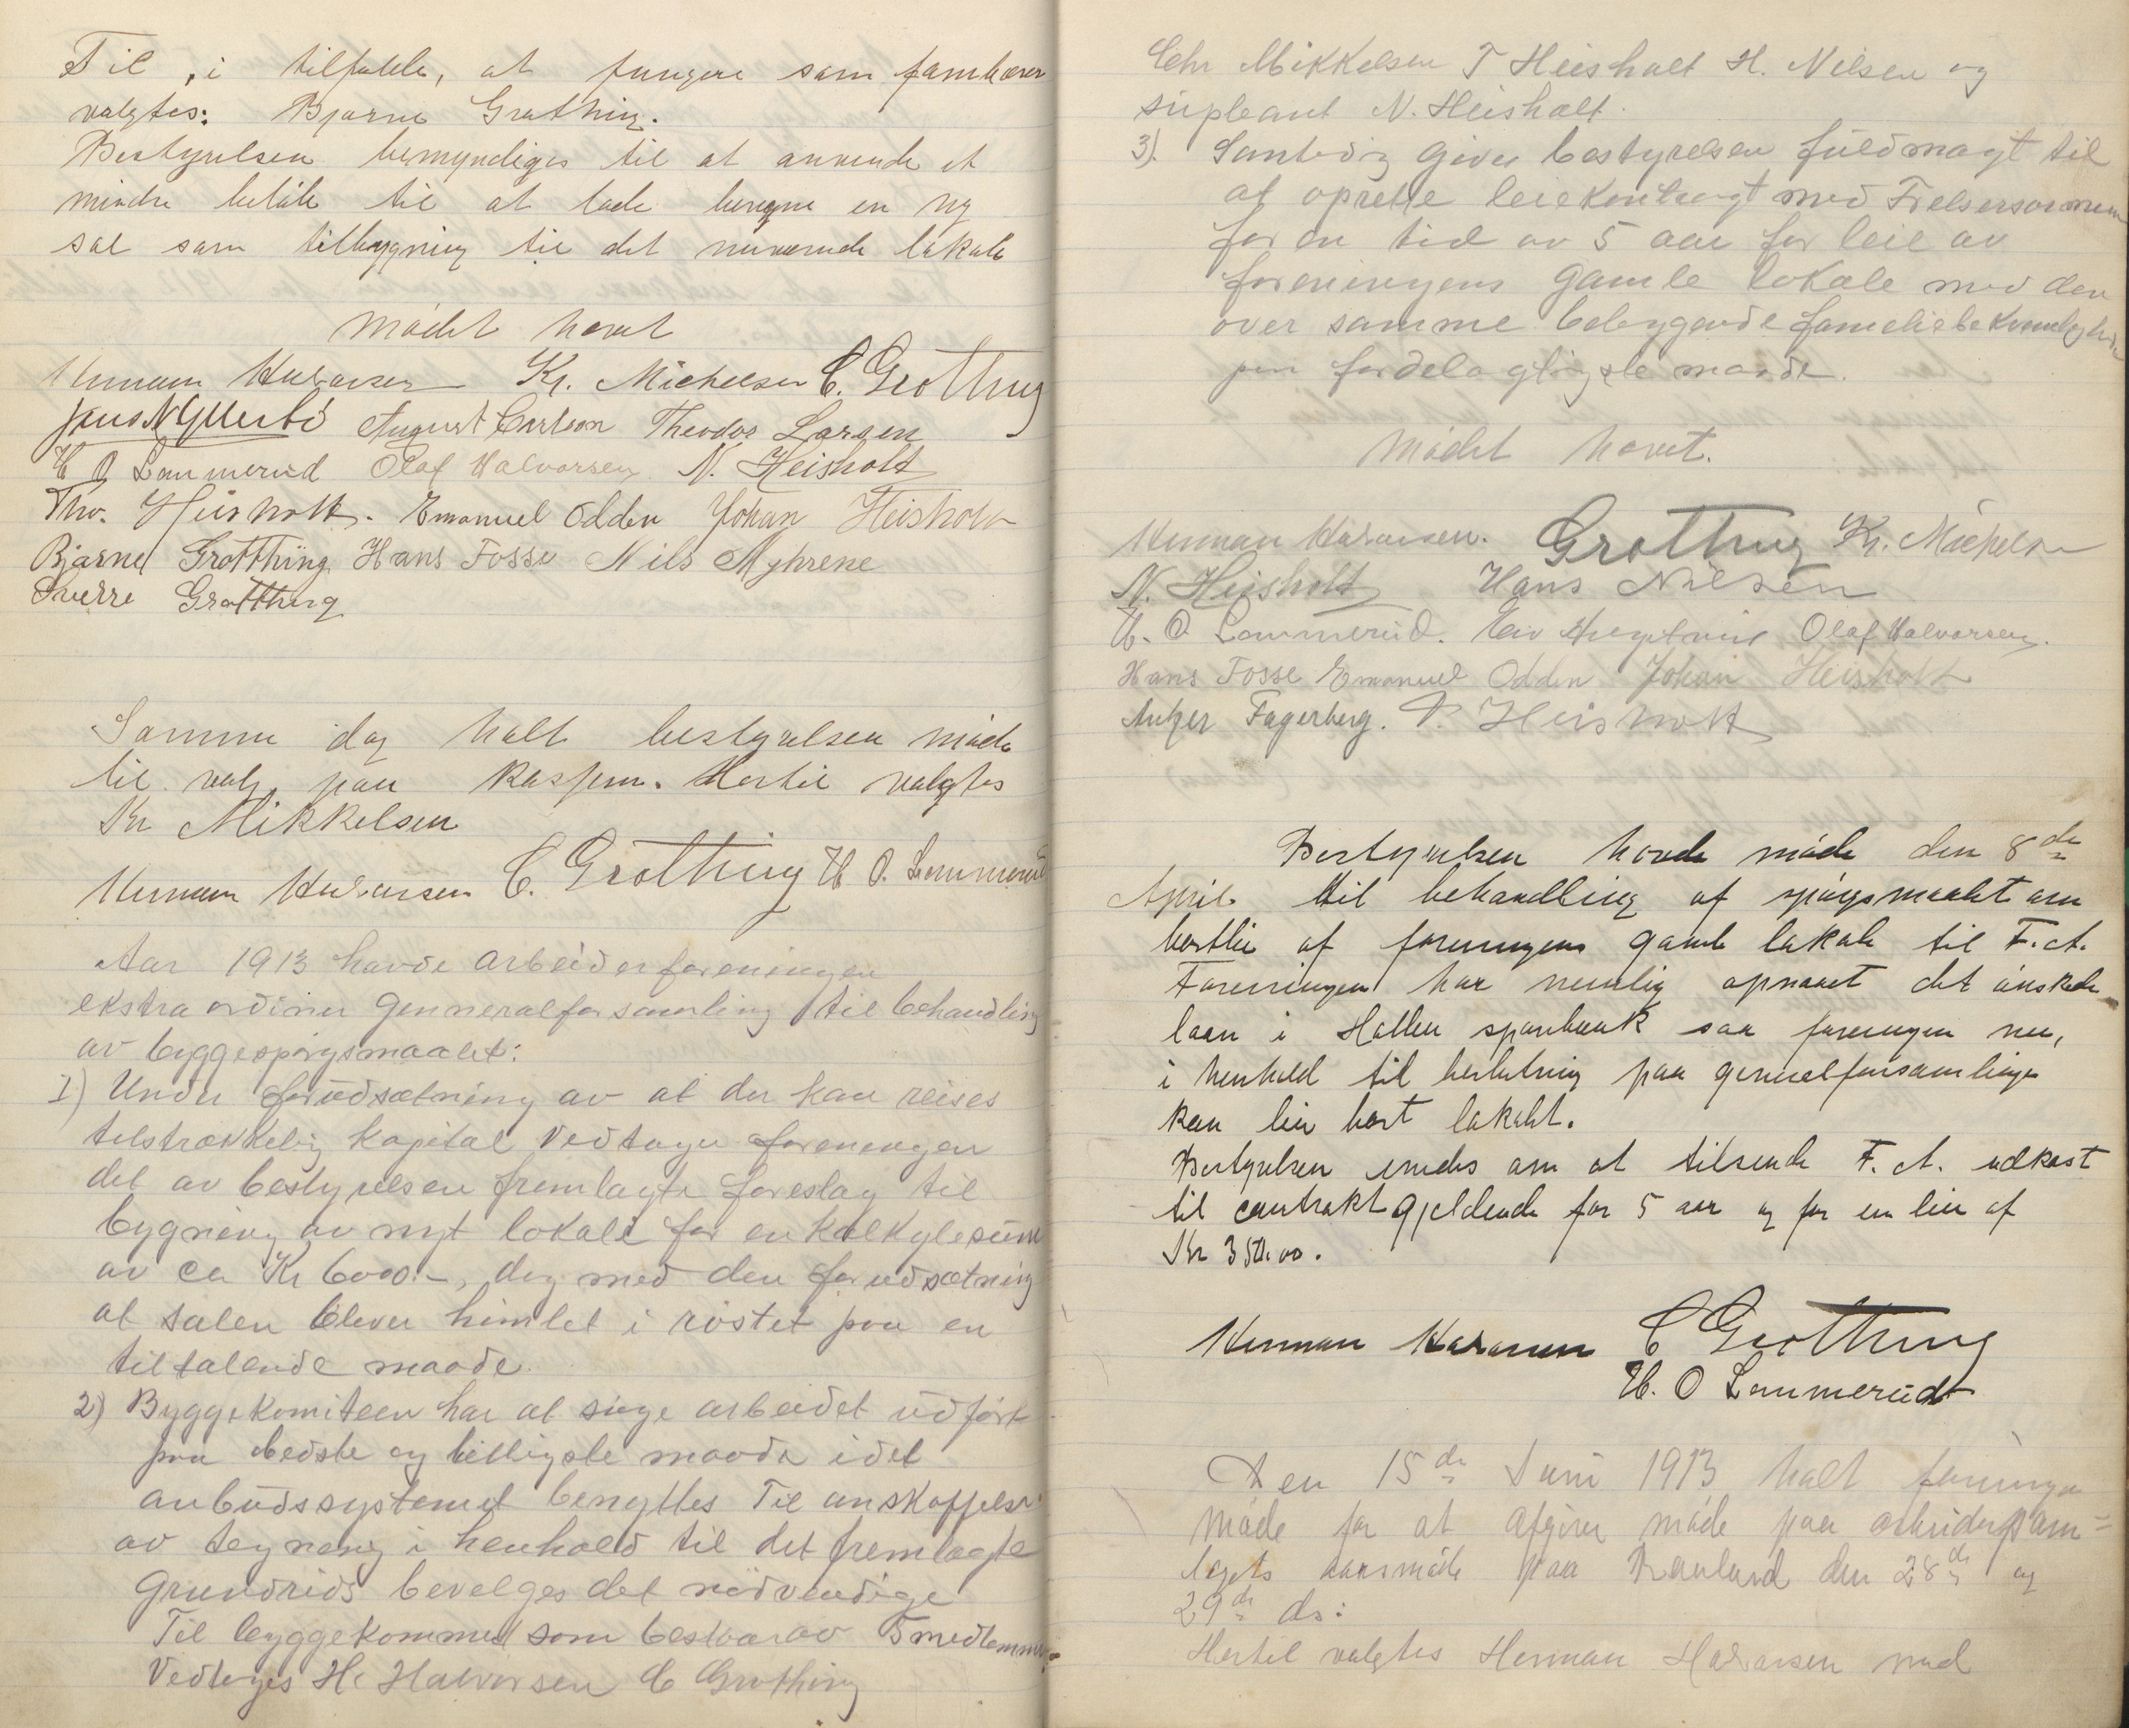 Til, i tilfælde, at fungere som fanebærer
valgtes: Bjarne Grøthing.
Bestyrelsen bemyndiges til at anvende et
mindre beløb til at lade beregne en ny
sal som tilbygning til det nuværende lokale
Mödet hævet
Herman Halvorsen Kr. Michelsen C. Grotthing
August Carlson Theodor Larsen
H O Lammerud Olaf Halvorsen N. Heisholt
Tho. Heisholt. Emanuel Odden Johan Heisholt
Bjarne Grotthing Hans Fosse Nils Myhrene
Sverre Grotthing
Samme dag holt bestyrelsen möde
til valg paa kasserer. Hertil valgtes
Kr Mikkelsen
Herman Halvorsen C. Grotthing H O. Lammerud
Aar 1913 havde arbeiderforeningen
ekstraordinær genneralforsamling til behandling
av byggespörgsmaalet:
1) Under forudsætning av at der kan reises
tilstrækkelig kapital vedtager foreningen
det av bestyrelsen fremlagte foreslag til
bygning av nyt lokale for en kalkylesüm
av ca Kr 6000.-, dog med den forudsætning
at salen blever himlet i röstet paa en
tiltalende maade.
2) Byggekomiteen har at söge arbeidet üdfört
paa bedste og billigste maade idet
anbüdssystemet benyttes Til anskaffelse
av tegning i henhold til det fremlagte
Grundrids bevelges det nödvendige
Til byggekomme som bestaar av 5 medlemmer
Vedtages H. Halvorsen C Grothing
Chr Mikkelsen T Heisholt H. Nilsen og
süpleant N. Heisholt.
3). Samtidig giver bestyrelsen füldmagt til
at oprette leiekontragt med Frelsesarmeen
for en tid av 5 aar for leie av
foreningens gamle lokale med den
over samme bebyggende familiebekvemlighed
paa fordelagtigste maade.
Mödet hævet.
Herman Halvorsen. Grotthing Kr. Michelsen
N. Heisholt Hans Nilsen
H. O Lammerud. Olaf Halvorsen.
Hans Fosse Emanuel Odden Johan Heisholt
Anker Fagerberg. T. Heisholt
Bestyrelsen havde möde den 8de
April til behandling af spörgsmaalet om
bortleie af foreningens gamle lokale til F. A.
Foreningen har nemlig opnaaet det önskede
laan i Hollen sparebank saa foreningen nu,
i henhold til beslutning paa generalforsamlingen
kan leie bort lokalet.
Bestyrelsen enedes om at tilsende F. A. udkast
til contrakt gjeldende for 5 aar og for en leie af
Kr 350.00.
Herman Halvorsen C Grotthing
H. O Lammerud
Den 15de Juni 1913 holt foreningen
möde for at afgive möde paa arbeidersam=
lagets aarsmöde paa Rauland den 28de og
29de ds:
Hertil valgtes Herman Halvorsen med